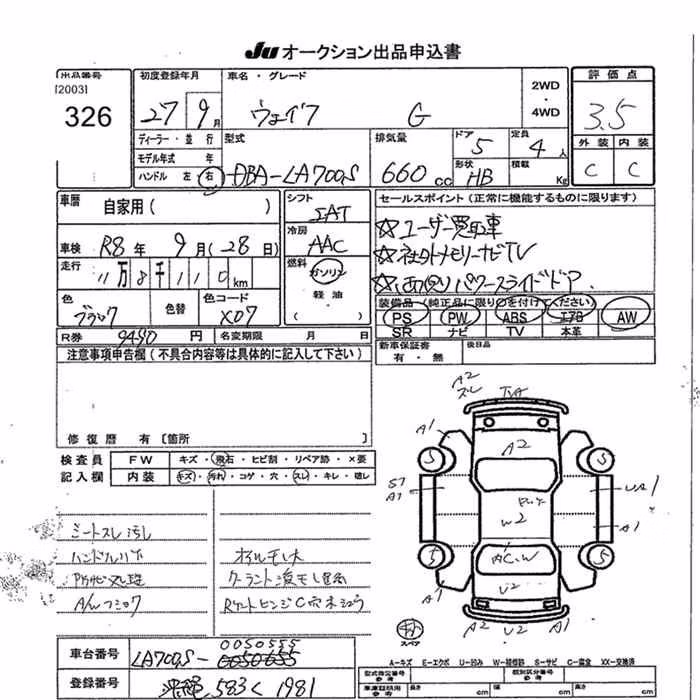 JU オークション出品申込書
出品番号
[2003]
326
初度登録年月
27 9月
車名・グレード
ウェイク G
2WD
・
4WD
評価点
3.5
外装 内装
C C
ディーラー・並行
モデル年式 年
ハンドル 左 右
型式
DBA-LA700S
排気量
660 cc
ドア 5
定員 4人
形状 HB
積載 Kg
車歴
自家用( )
車検 R8年 9月(28日)
走行 11万8千110km
色 ブラック
色替
色コード X07
シフト IAT
冷房 AAC
燃料
ガソリン
軽油
( )
セールスポイント(正常に機能するものに限ります)
☆ユーザー買取車
☆社外メモリーナビTV
パワースライドドア
装備品 純正品に限り○を付けてください
PS PW ABS エアB AW
SR ナビ TV 本革
新車保証書
有・無
後日品
R券 9490円
名変期限 月 日
注意事項申告欄(不具合内容等は具体的に記入して下さい)
修復歴 有〔箇所 〕
検査員
記入欄
FW キズ・飛石・ヒビ割・リペア跡・×要
内装 キズ・汚れ・コゲ・穴・スレ・キレ・破レ
シートスレ汚し
オイルモレ大
A2
A1
A2
A1
S1
A1
UA1
W2
A1
AC.W
U2
A1
A1
A2 U2 A2
5 5
5 5
スペア
A-キズ E-エクボ U-凹み W-補修跡 S-サビ C-腐食 XX-交換済
車台番号 LA700S-0050655
0050555
登録番号 沖縄 583 く 1981
型式指定番号
参考
類別区分番号
参考
車庫証明用
参考
長さ cm
幅 cm
高さ cm